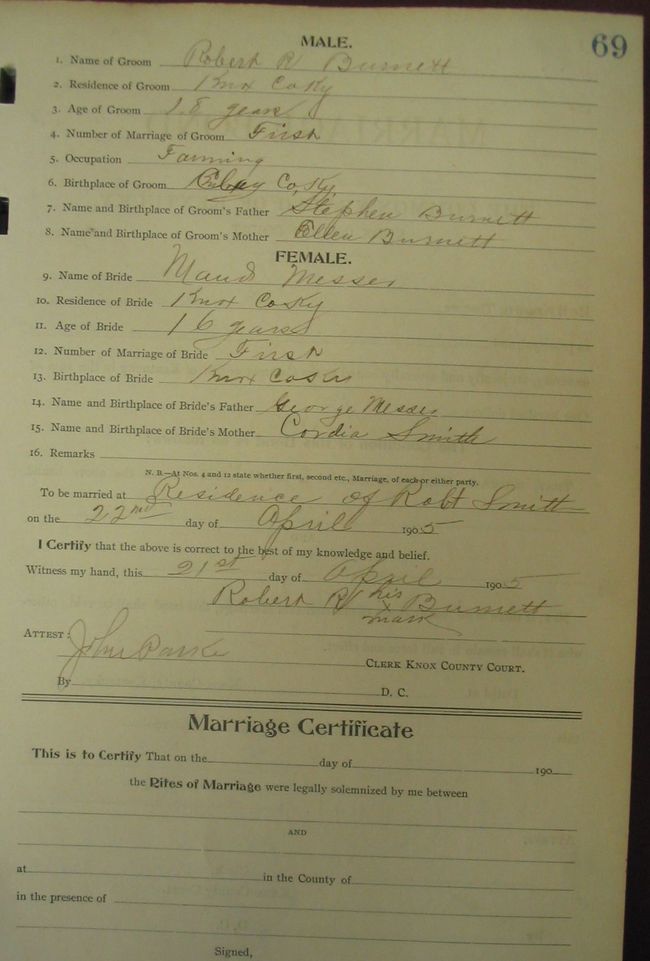 69
MALE.
1. Name of Groom Robert R Burnett
2. Residence of Groom Knox Co Ky
3. Age of Groom 18 years
4. Number of Marriage of Groom First
5. Occupation Farming
6. Birthplace of Groom Clay Co, Ky,
7. Name and Birthplace of Groom's Father Stephen Burnett
8. Name and Birthplace of Groom's Mother Ellen Burnett
FEMALE.
9. Name of Bride Maud Messer
10. Residence of Bride Knox Co Ky
11. Age of Bride 16 years
12. Number of Marriage of Bride First
13. Birthplace of Bride Knox Co Ky
14. Name and Birthplace of Bride's Father George Messer
15. Name and Birthplace of Bride's Mother Cordia Smith
16. Remarks
N. B.—At Nos. 4 and 12 state whether first, second etc., Marriage, of each or either party.
To be married at Residence of Robt Smith
on the 22nd day of April 1905
I Certify that the above is correct to the best of my knowledge and belief.
Witness my hand, this 21st day of April 1905
Robert R his x mark Burnett
ATTEST:
John Parker CLERK KNOX COUNTY COURT.
By D. C.
Marriage Certificate
This is to Certify That on the day of 190
the Rites of Marriage were legally solemnized by me between
AND
at in the County of
in the presence of
Signed,